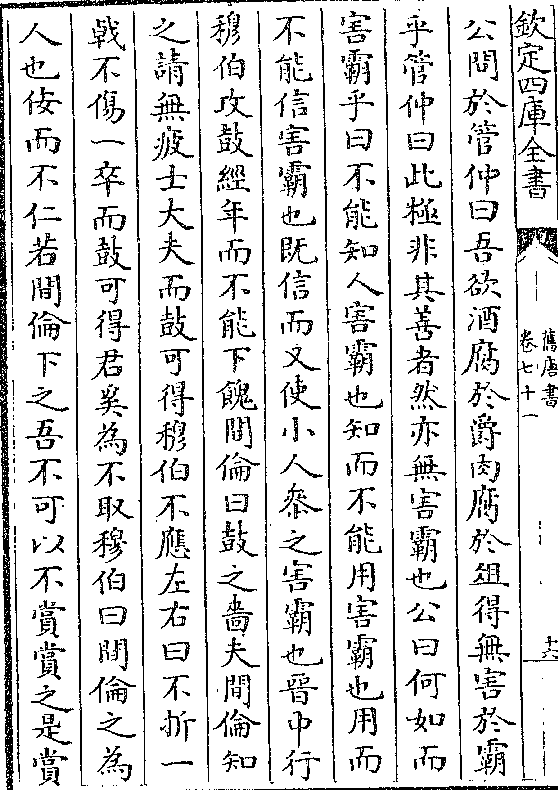 欽定四庫全書
舊唐書
卷七十一
十六
公問於管仲曰吾欲酒腐於爵肉腐於俎得無害於霸
乎管仲曰此極非其善者然亦無害霸也公曰何如而
害霸乎曰不能知人害霸也知而不能用害霸也用而
不能信害霸也既信而又使小人參之害霸也晉中行
穆伯攻鼓經年而不能下餽間倫曰鼓之嗇夫間倫知
之請無疲士大夫而鼓可得穆伯不應左右曰不折一
戟不傷一卒而鼓可得君奚為不取穆伯曰間倫之為
人也佞而不仁若間倫下之吾不可以不賞賞之是賞